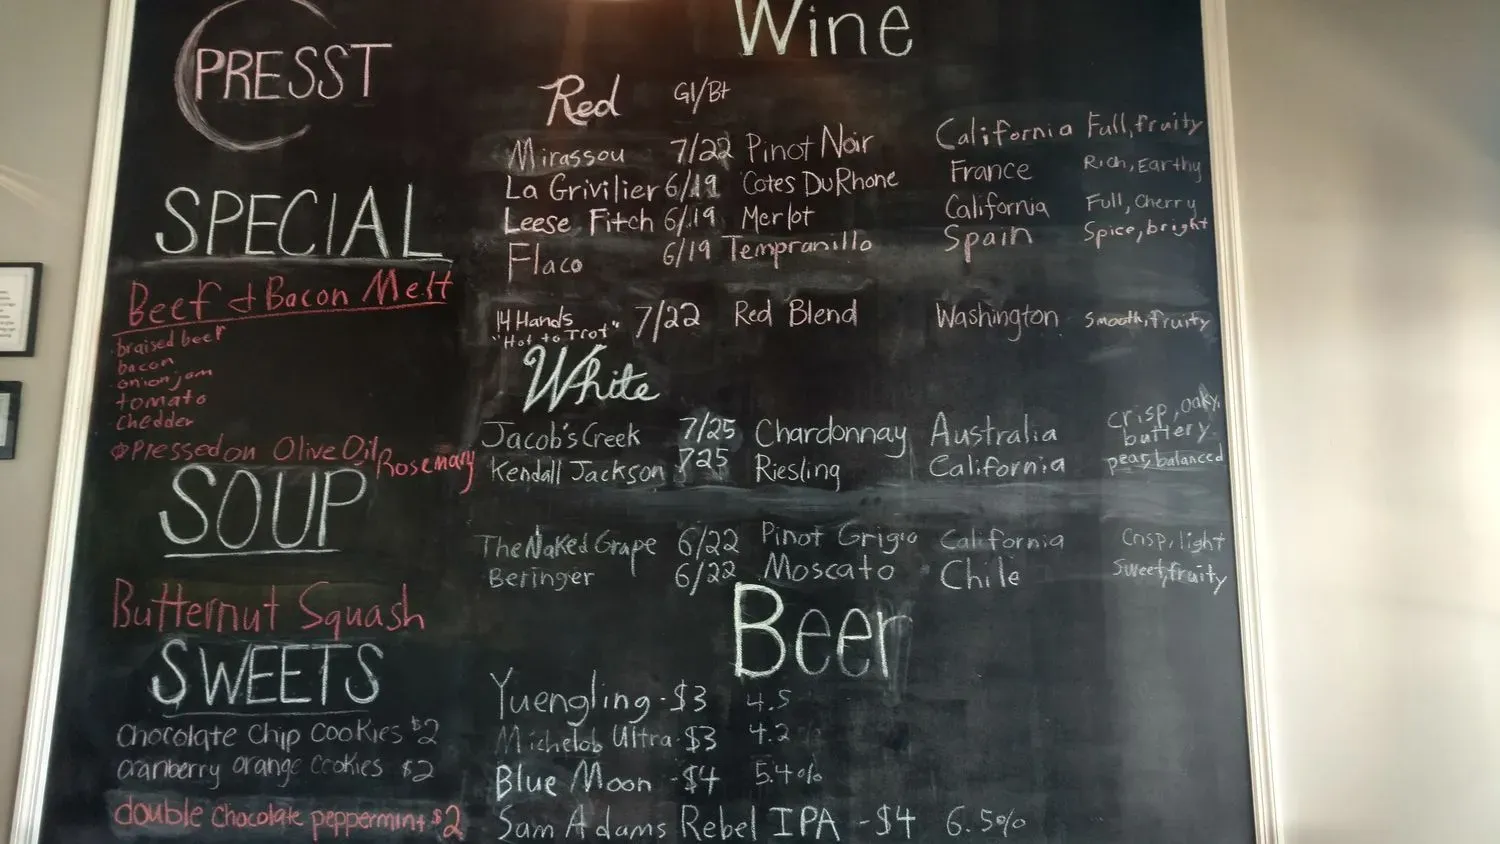 PRESST
SPECIAL
Beef & Bacon Melt
braised beef
bacon
onion jam
tomato
chedder
Pressed on Olive Oil Rosemary
SOUP
Butternut Squash
SWEETS
chocolate chip cookies $2
cranberry orange cookies $2
double chocolate peppermint $2
Wine
Red Gl/Bt
Mirassou 7/22 Pinot Noir California Full, fruity
La Grivilier 6/19 Cotes Du Rhone France Rich, Earthy
Leese Fitch 6/19 Merlot California Full, Cherry
Flaco 6/19 Tempranillo Spain Spice, bright
14 Hands "Hot to Trot" 7/22 Red Blend Washington Smooth, fruity
White
Jacob's Creek 7/25 Chardonnay Australia crisp, oaky, buttery
Kendall Jackson 725 Riesling California pear, balanced
The Naked Grape 6/22 Pinot Grigio California Crisp, light
Beringer 6/22 Moscato Chile Sweet, fruity
Beer
Yuengling - $3 4.5
Michelob Ultra - $3 4.2
Blue Moon - $4 5.4%
Sam Adams Rebel IPA - $4 6.5%